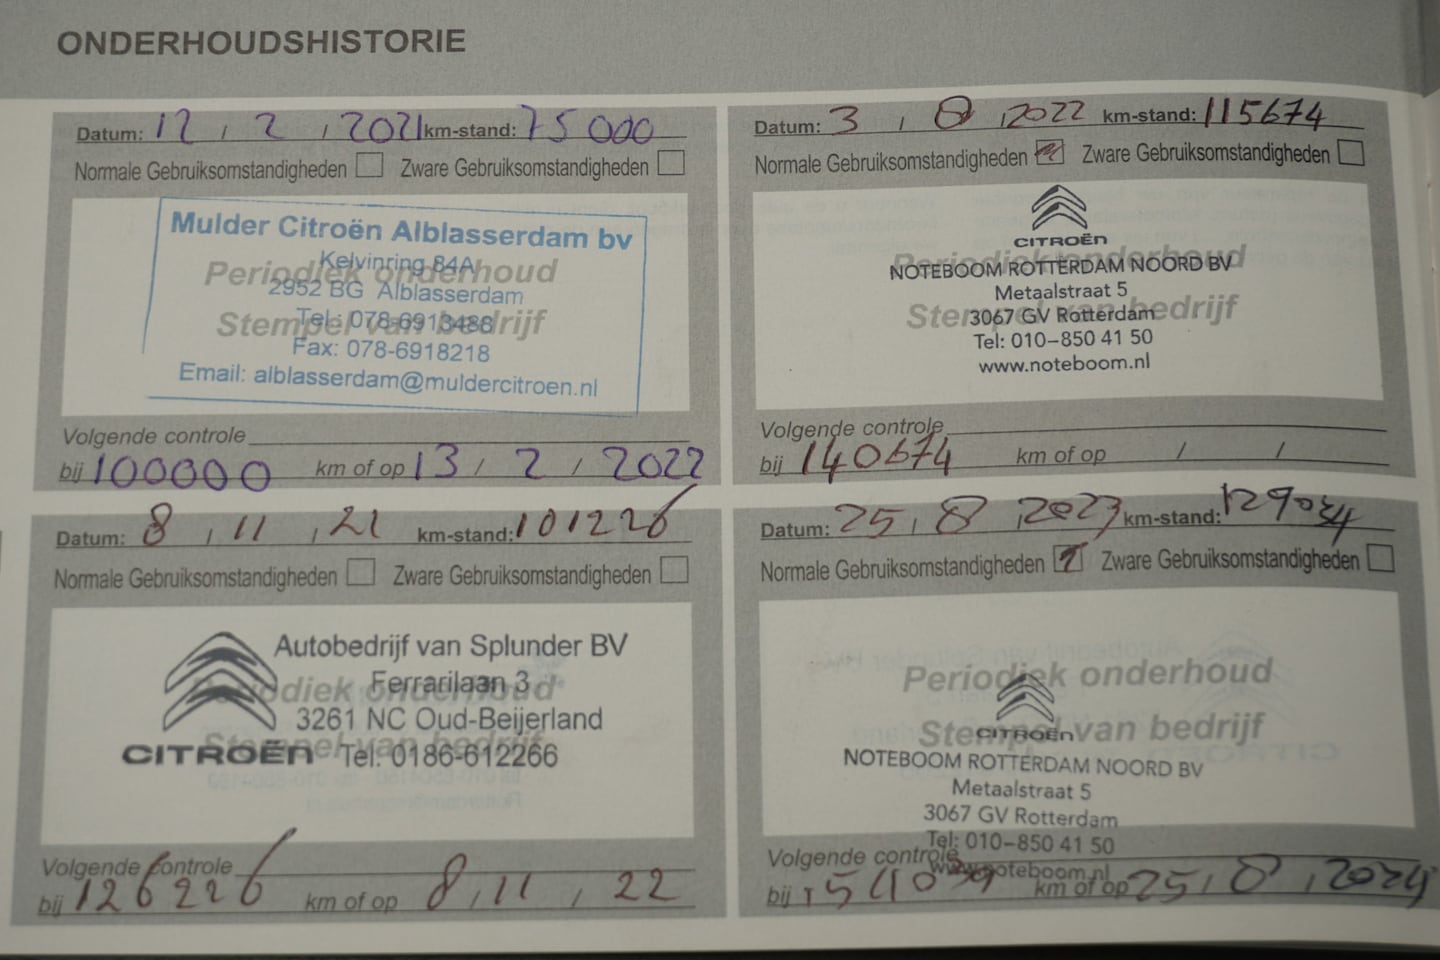 ONDERHOUDSHISTORIE
Datum: 12 / 2 / 2021 km-stand: 75000
Normale Gebruiksomstandigheden Zware Gebruiksomstandigheden
Mulder Citroën Alblasserdam bv
Kelvinring 84A
Periodiek onderhoud
2952 BG Alblasserdam
Stempel van bedrijf
Tel.: 078-6913488
Fax: 078-6918218
Email: alblasserdam@muldercitroen.nl
Volgende controle
bij 100000 km of op 13 / 2 / 2022
Datum: 8 / 11 / 21 km-stand: 101226
Normale Gebruiksomstandigheden Zware Gebruiksomstandigheden
Autobedrijf van Splunder BV
Ferrarilaan 3
Periodiek onderhoud
3261 NC Oud-Beijerland
Stempel van bedrijf
CITROËN Tel: 0186-612266
Volgende controle
bij 126226 km of op 8 / 11 / 22
Datum: 3 / 8 / 2022 km-stand: 115674
Normale Gebruiksomstandigheden Zware Gebruiksomstandigheden
CITROËN
Periodiek onderhoud
NOTEBOOM ROTTERDAM NOORD BV
Metaalstraat 5
Stempel van bedrijf
3067 GV Rotterdam
Tel: 010-850 41 50
www.noteboom.nl
Volgende controle
bij 140674 km of op / /
Datum: 25 / 8 / 2023 km-stand:
Normale Gebruiksomstandigheden Zware Gebruiksomstandigheden
Periodiek onderhoud
Stempel van bedrijf
CITROËN
NOTEBOOM ROTTERDAM NOORD BV
Metaalstraat 5
3067 GV Rotterdam
Tel: 010-850 41 50
Volgende controle
www.noteboom.nl
bij km of op 25 / 8 / 2024